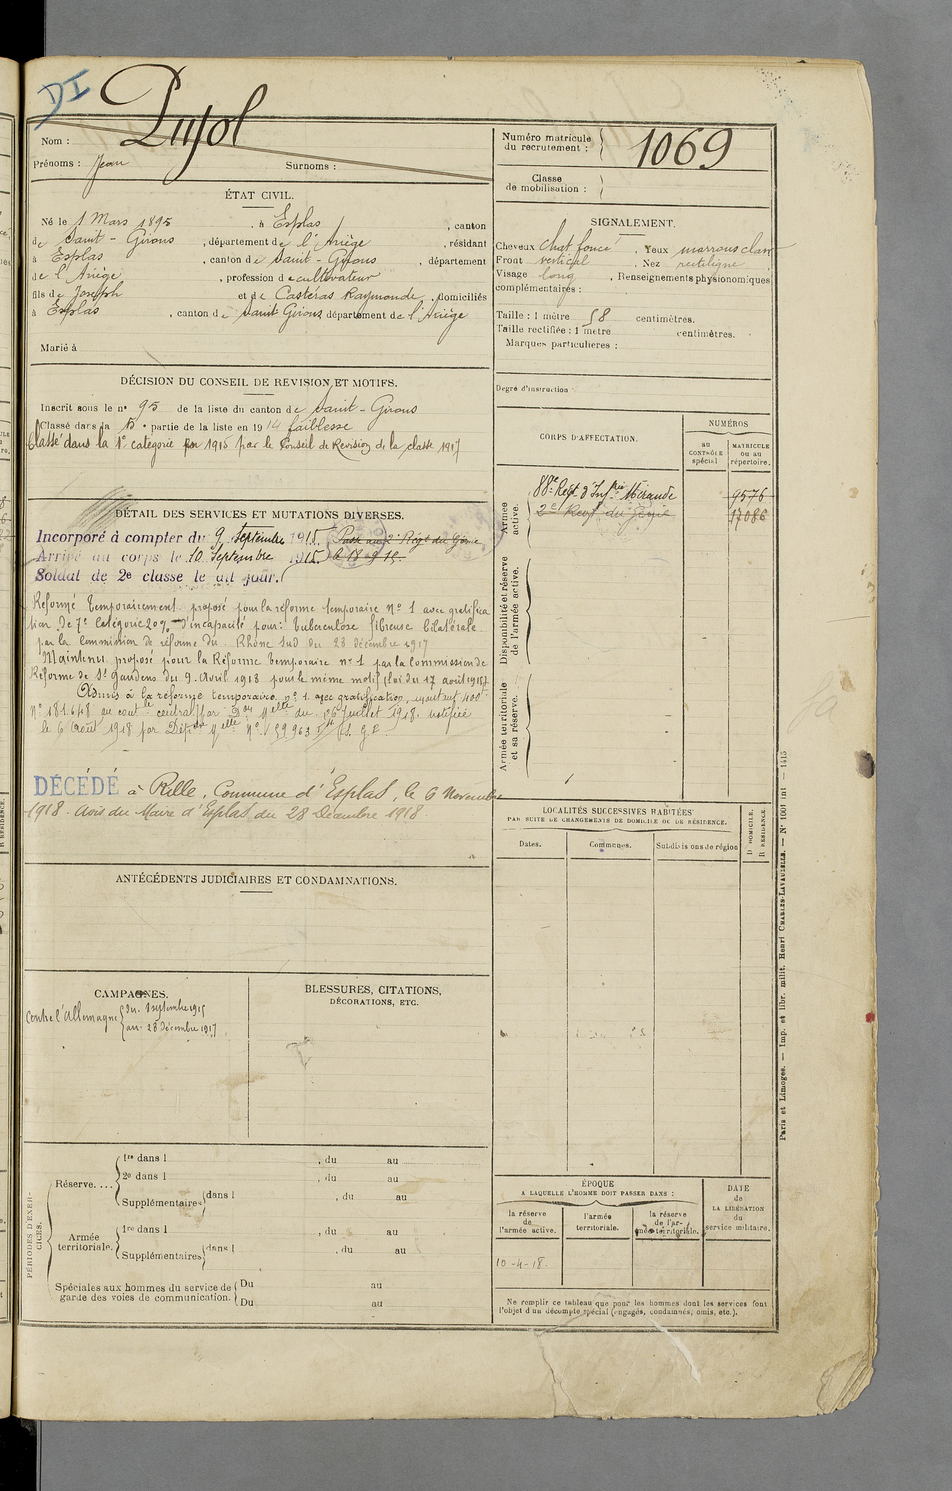 DI
Pujol
Nom :
Prénoms : Jean Surnoms :
Numéro matricule du recrutement : 1069
Classe de mobilisation :
ÉTAT CIVIL.
Né le 1 Mars 1895, à Esplas, canton
de Saint-Girons, département de l'Ariège, résidant
à Esplas, canton de Saint-Girons, département
de l'Ariège, profession de cultivateur
fils de Joseph et de Castéras Raymonde, domiciliés
à Esplas, canton de Saint Girons département de l'Ariège
Marié à
SIGNALEMENT.
Cheveux chat foncé Yeux marrons clair
Front vertical Nez rectiligne
Visage long, Renseignements physionomiques
complémentaires :
Taille : 1 mètre 58 centimètres.
Taille rectifiée : 1 mètre centimètres.
Marques particulières :
Degré d'instruction
DÉCISION DU CONSEIL DE REVISION ET MOTIFS.
Inscrit sous le n° 95 de la liste du canton de Saint-Girons
Classé dans la 5e partie de la liste en 1914 faiblesse
Classé dans la 1e catégorie en 1915 par le Conseil de Revision de la classe 1917
DÉTAIL DES SERVICES ET MUTATIONS DIVERSES.
Incorporé à compter du 9 Septembre 1915. Passé au 2e Régt du Génie
Arrivé au corps le 10 Septembre 1915. le 18-9-15.
Soldat de 2e classe le dit jour.
Réformé temporairement proposé pour la réforme temporaire n° 1 avec gratifica
tion de 7e catégorie 20% d'incapacité pour : tuberculose fibreuse bilatérale
par la commission de réforme du Rhône Sud du 28 décembre 1917
Maintenu proposé pour la Réforme temporaire n° 1 par la Commission de
Réforme de St Gaudens du 9 Avril 1918 pour le même motif (loi du 17 août 1915).
Admis à la réforme temporaire n° 1 avec gratification
du 16 juillet 1918. notifiée
le 6 Août 1918 par
DÉCÉDÉ à Rille, Commune d'Esplas, le 6 Novembre
1918. Avis du Maire d'Esplas du 28 Décembre 1918
ANTÉCÉDENTS JUDICIAIRES ET CONDAMNATIONS.
CAMPAGNES.
Contre l'Allemagne du 9 septembre 1915
au 28 Décembre 1917
BLESSURES, CITATIONS,
DÉCORATIONS, ETC.
PÉRIODES D'EXERCICES.
Réserve....
1re dans l , du au
2e dans l , du au
Supplémentaires dans l , du au
Armée territoriale.
1re dans l , du au
Supplémentaires dans l , du au
Spéciales aux hommes du service de garde des voies de communication.
Du au
Du au
CORPS D'AFFECTATION.
NUMÉROS
au CONTRÔLE spécial
MATRICULE ou au répertoire.
Armée active.
88e Regt d'Infrie Mirande 9576
2e Regt du Génie 17086
Disponibilité et réserve de l'armée active.
Armée territoriale et sa réserve.
LOCALITÉS SUCCESSIVES HABITÉES
PAR SUITE DE CHANGEMENTS DE DOMICILE OU DE RÉSIDENCE.
Dates.
Communes.
Subdivisions de région
D DOMICILE.
R RÉSIDENCE.
ÉPOQUE
A LAQUELLE L'HOMME DOIT PASSER DANS :
la réserve de l'armée active.
l'armée territoriale.
la réserve de l'armée territoriale.
DATE de LA LIBÉRATION du service militaire.
10-4-18.
Ne remplir ce tableau que pour les hommes dont les services font
l'objet d'un décompte spécial (engagés, condamnés, omis, etc.).
Paris et Limoges. — Imp. et libr. milit. Henri CHARLES-LAVAUZELLE. —